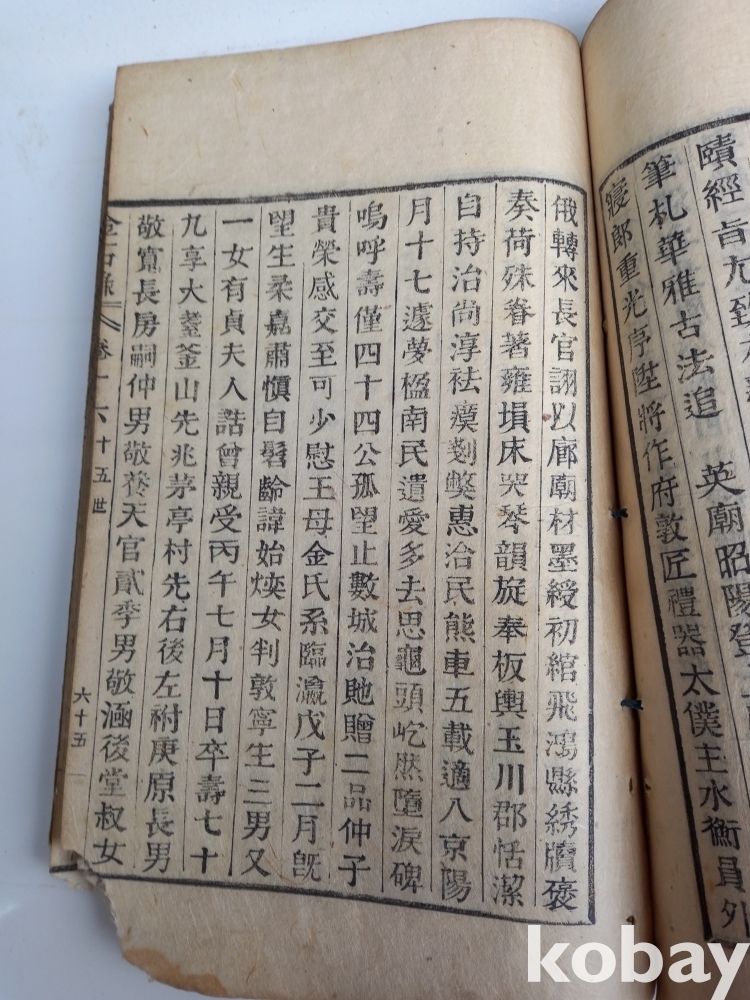 賾經旨尤致
筆札華雅古法追 英廟昭陽登
寢郎重光亭陞將作府敦匠禮器太僕主水衡員外
俄轉來長官詡以廊廟材墨綬初綰飛鴻縣綉牘褒
奏荷殊眷著雍塤床哭琴韻旋奉板輿玉川郡恬潔
自持治尚淳袪瘼剗獘惠洽民熊車五載適八京陽
月十七遽夢楹南民遺愛多去思龜頭屹然墮淚碑
嗚呼壽僅四十四公孤望止數城治貤贈二品仲子
貴榮感交至可少慰王母金氏系臨瀛戊子二月旣
望生柔嘉肅愼自髫齡諱始煐女判敦寧生三男又
一女有貞夫人誥曾親受丙午七月十日卒壽七十
九享大耋釜山先兆茅亭村先右後左祔庚原長男
敬寬長房嗣仲男敬養天官貳季男敬涵後堂叔女
卷十六 十五世
六十五
kobay